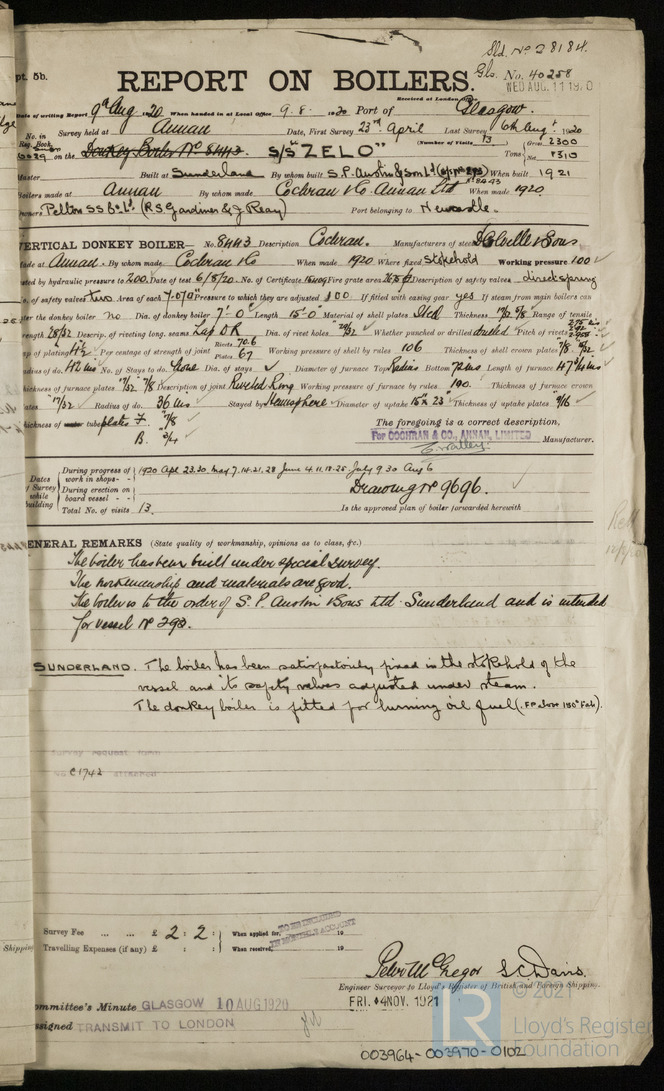 Sld. No 28184.
pt. 5b.
REPORT ON BOILERS.
Gls. No. 40258
Received at London Office WED AUG. 11 1920
Date of writing Report 9th Aug. 1920 When handed in at Local Office 9. 8. 1920 Port of Glasgow.
No. in Reg. Book. Survey held at Annan Date, First Survey 23rd April Last Survey 6th Aug. 1920
on the Donkey Boiler No 8443. S/S "ZELO" (Number of Visits 13) Tons Gross 2300 Net 1310
Master Built at Sunderland By whom built S.P. Austin & Son Ld (Yard No 293) When built 1921
Boilers made at Annan By whom made Cochran & Co. Annan Ltd No 8443 When made 1920.
Owners Pelton SS Co. Ld. (R S Gardiner & J Reay) Port belonging to Newcastle.
VERTICAL DONKEY BOILER— No. 8443 Description Cochran. Manufacturers of steel D Colville & Sons
Made at Annan. By whom made Cochran & Co When made 1920 Where fixed Stokehold Working pressure 100
tested by hydraulic pressure to 200. Date of test 6/8/20. No. of Certificate Fire grate area Description of safety valves direct spring
No. of safety valves two Area of each 7.07 Pressure to which they are adjusted 100 If fitted with easing gear yes If steam from main boilers can
enter the donkey boiler no Dia. of donkey boiler 7'-0" Length 15'-0 Material of shell plates Steel Thickness 17/32 5/8 Range of tensile
strength 28/32 Descrip. of riveting long. seams Lap D R Dia. of rivet holes 29/32 Whether punched or drilled drilled Pitch of rivets
Lap of plating 4 1/2 Per centage of strength of joint Rivets 70.6 Plates 67 Working pressure of shell by rules 106 Thickness of shell crown plates 5/8
Radius of do. 42 ins No. of Stays to do. None Dia. of stays Diameter of furnace Top Radius Bottom 72 ins Length of furnace 47 3/4 ins
Thickness of furnace plates 17/32 7/8 Description of joint Riveted Ring Working pressure of furnace by rules 190. Thickness of furnace crown
plates 17/32 Radius of do. 36 ins Stayed by Hemisphere Diameter of uptake 15" x 23" Thickness of uptake plates 9/16
Thickness of water tubes plates F. 7/8 The foregoing is a correct description,
B. 3/4 For COCHRAN & CO., ANNAN, LIMITED Manufacturer.
Dates of Survey while building
During progress of work in shops - - 1920 Apl. 23.30. May 7.14.21.28 June 4.11.18.25 July 9.30 Aug 6
During erection on board vessel - - - Drawing No 9696.
Total No. of visits 13. Is the approved plan of boiler forwarded herewith
GENERAL REMARKS (State quality of workmanship, opinions as to class, &c.)
The boiler has been built under special survey.
The workmanship and materials are good.
The boiler is to the order of S. P. Austin & Sons Ltd. Sunderland and is intended
for vessel No 293.
SUNDERLAND. The boiler has been satisfactorily fixed in the stokehold of the
vessel and its safety valves adjusted under steam.
The donkey boiler is fitted for burning oil fuel (F.P. above 150° Fah).
Survey request form
No C1742 attached
Survey Fee ... ... £ 2 : 2 : When applied for, 19
TO BE INCLUDED IN MONTHLY ACCOUNT
Travelling Expenses (if any) £ : : When received, 19
Shipping
Peter McGregor S.C. Davis.
Engineer Surveyor to Lloyd's Register of British and Foreign Shipping.
Committee's Minute GLASGOW 10 AUG 1920 FRI. 4 NOV. 1921
Assigned TRANSMIT TO LONDON
LR © 2021
Lloyd's Register
Foundation
003964-003970-0102